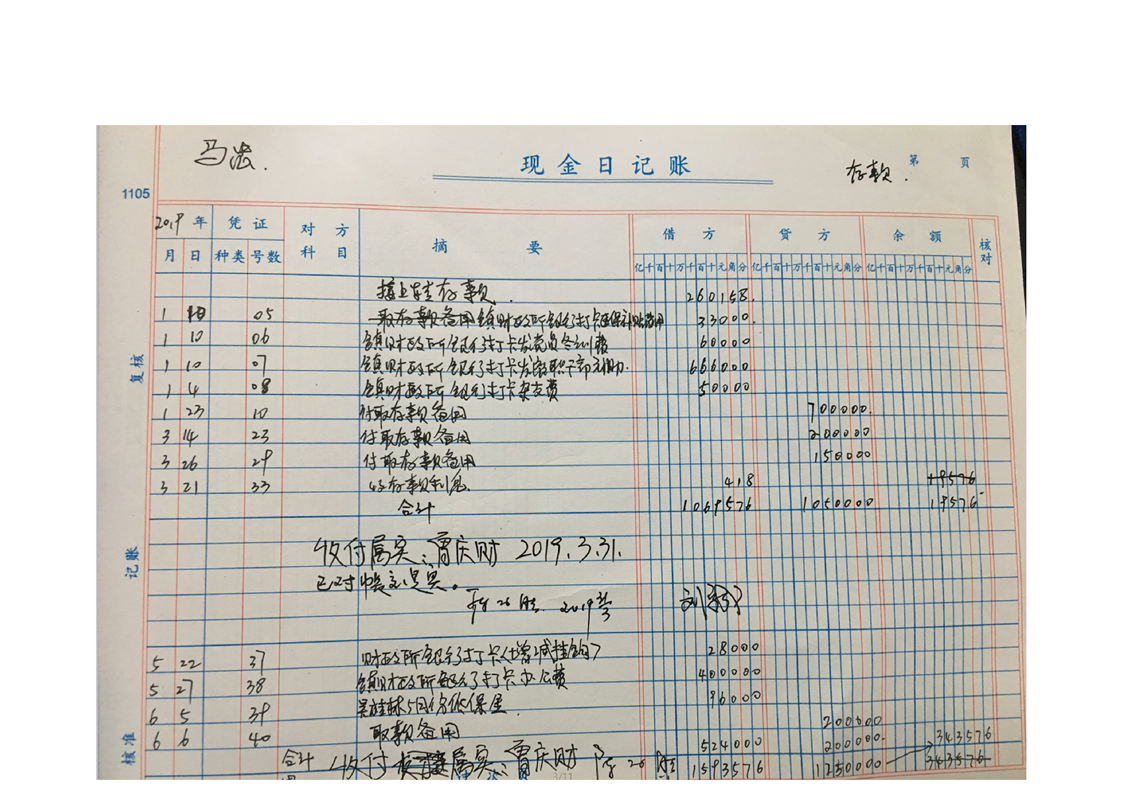 现金日记账
第 页
存款.
1105
2019年 凭证 对方科目 摘要 借方 贷方 余额 核对
月 日 种类 号数 亿千百十万千百十元角分 亿千百十万千百十元角分 亿千百十万千百十元角分
接上年存款. 260158.
1 10 05 取存款备用镇财政所银行打卡 33000.
1 10 06 镇财政所银行打卡发党员冬训费 60000
1 10 07 镇财政所银行打卡发 666000
1 4 08 镇财政所银行打卡杂支费 50000
1 23 10 付取存款备用 700000.
3 14 23 付取存款备用 200000
3 26 29 付取存款备用 150000
3 21 33 收存款利息. 418 19576
合计 1069576 1050000 19576
收付属实: 曹庆财 2019.3.31.
已对帐无误.
5 22 37 财政所银行打卡(增减挂钩) 28000
5 27 38 镇财政所银行打卡办公费 400000
6 5 39 96000
6 6 40 取款备用 200000
524000 200000. 343576
合计 收付属实: 曹庆财 1593576 1250000 343576
复核
记账
核准